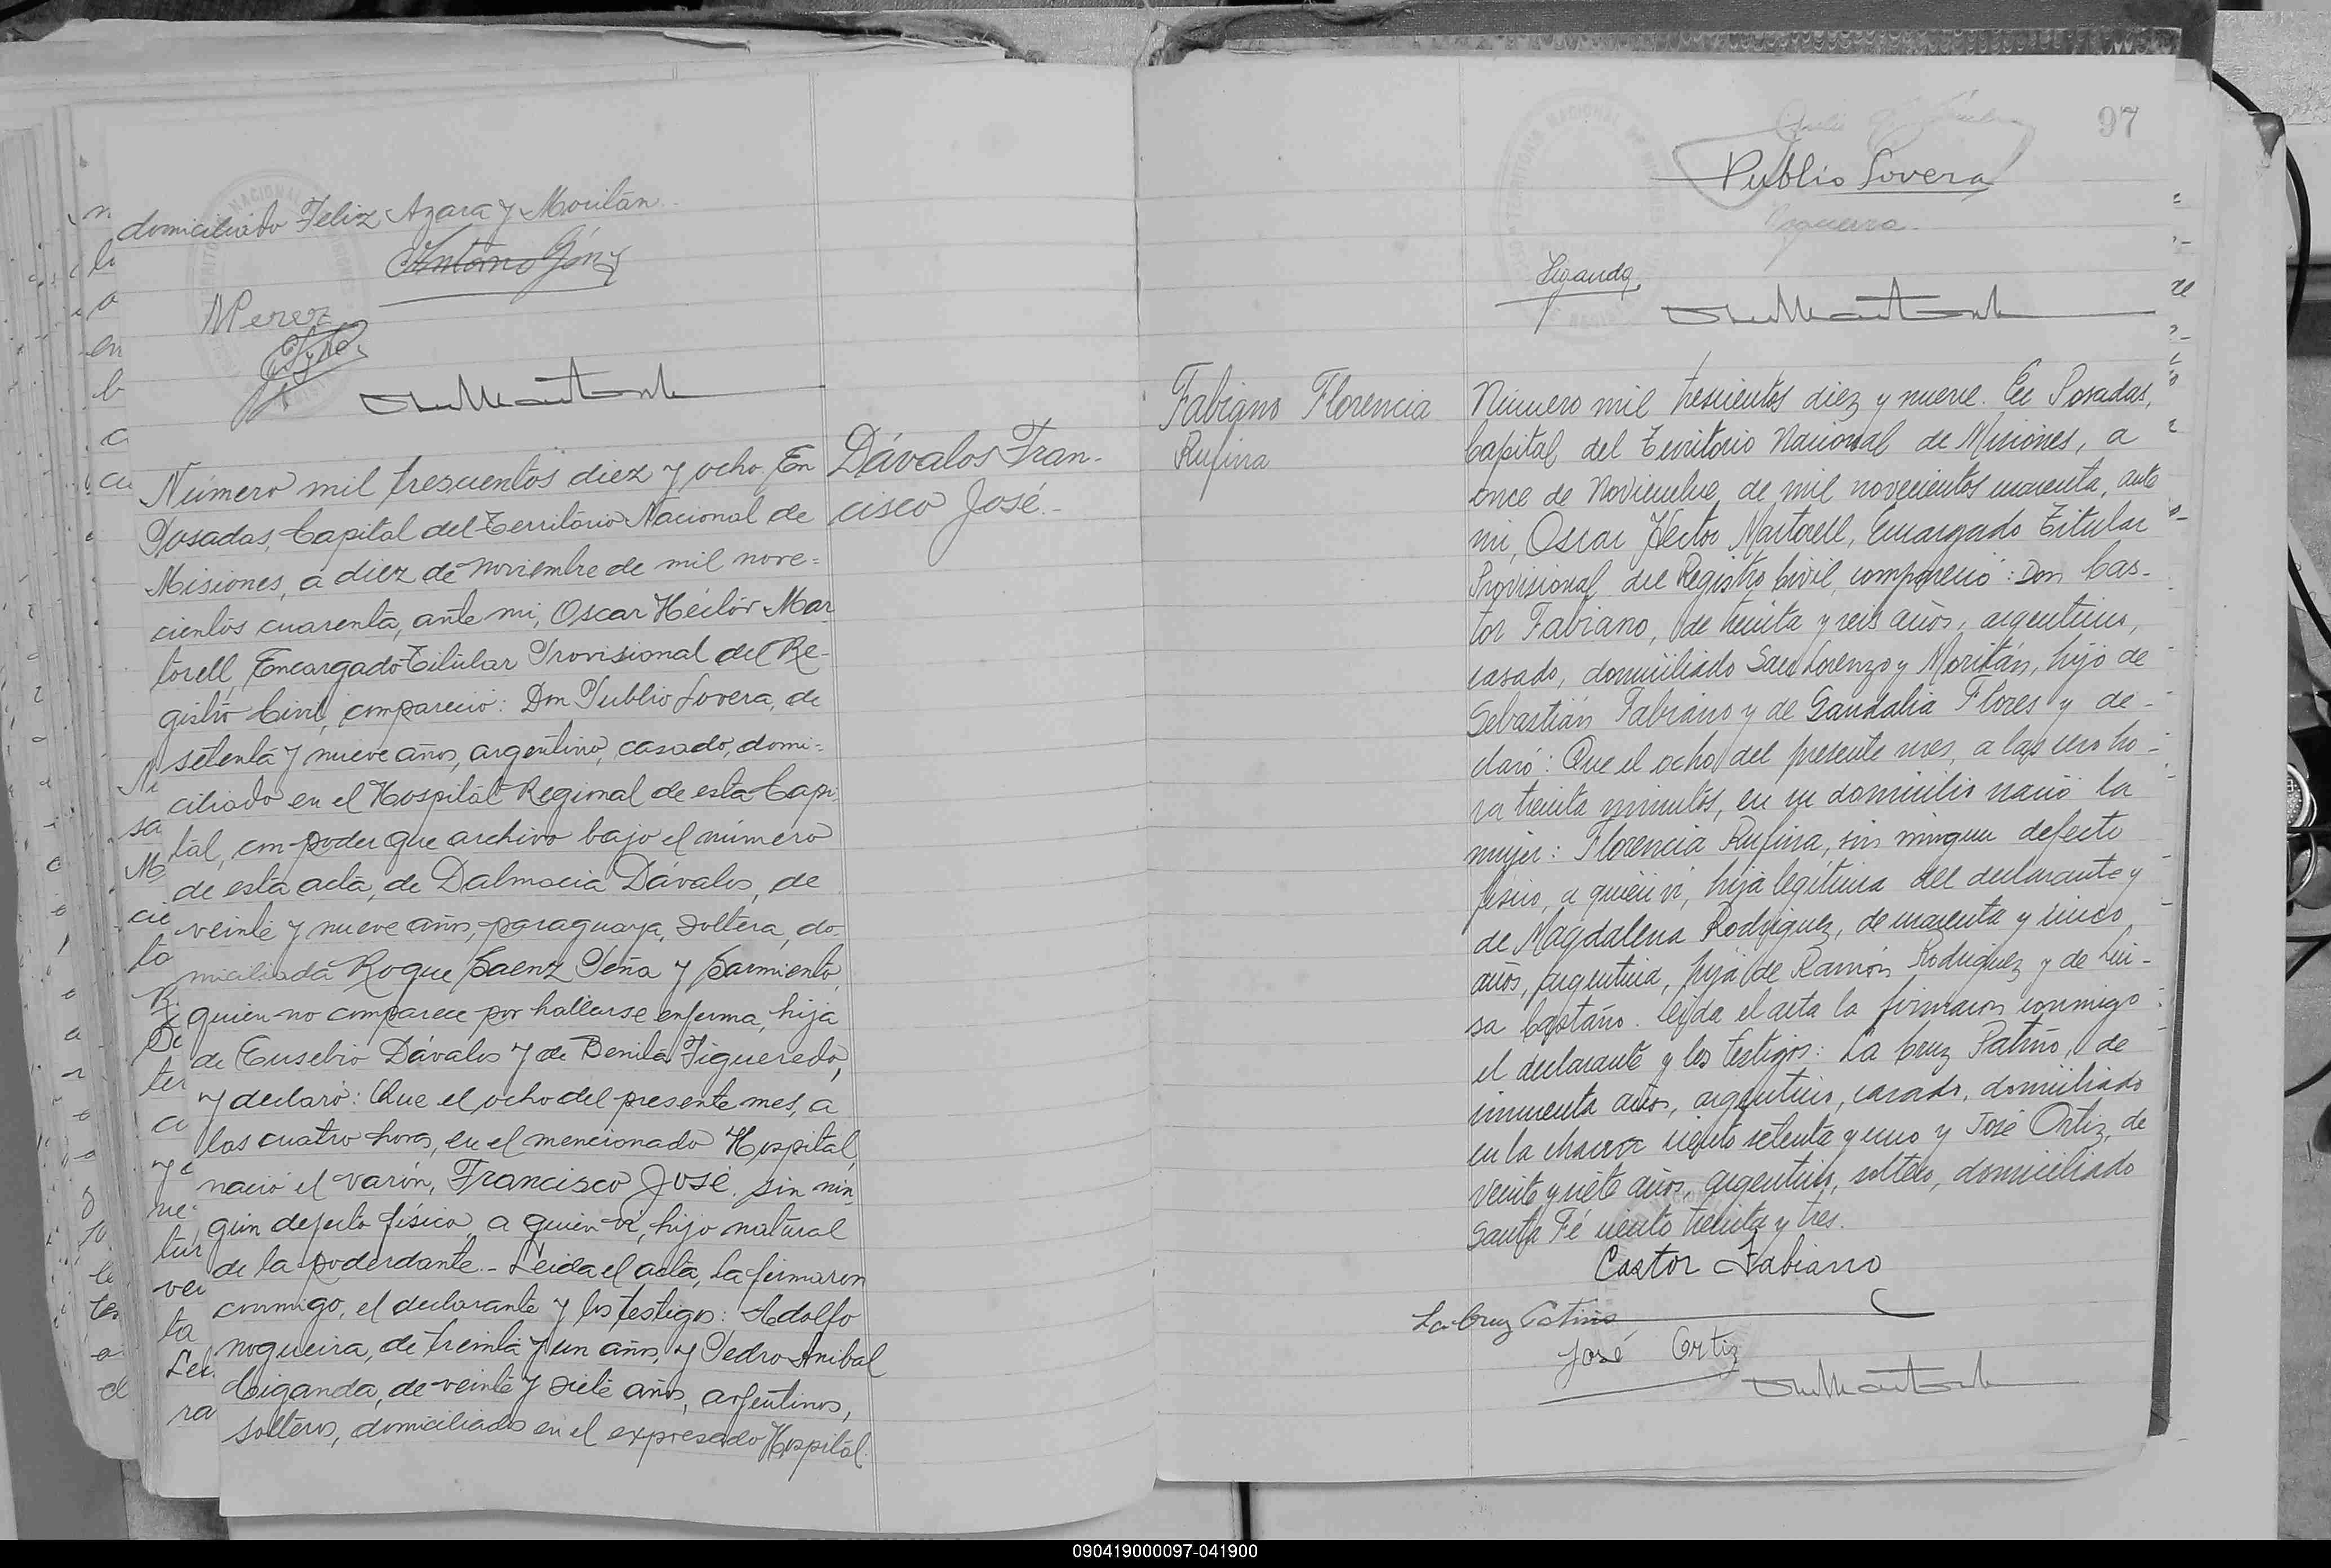 domiciliado Feliz Azara y Moritán.
MPerez
Número mil trescientos diez y ocho. En
Posadas, Capital del Territorio Nacional de
Misiones, a diez de noviembre de mil nove=
cientos cuarenta, ante mi, Oscar Héctor Mar
torell, Encargado Titular Provisional del Re-
gistro Civil, compareció: Don Publio Lovera, de
setenta y nueve años, argentino, casado, domi=
ciliado en el Hospital Regional de esta Capi-
tal, con poder que archivo bajo el número
de esta acta, de Dalmacia Dávalos, de
veinte y nueve años, paraguaya, soltera, do-
miciliada Roque Saenz Peña y Sarmiento,
quien no comparece por hallarse enferma, hija
de Eusebio Dávalos y de Benita Figueredo,
y declaró: Que el ocho del presente mes, a
las cuatro horas, en el mencionado Hospital,
nació el varón, Francisco José, sin nin
gún defecto físico, a quien vi, hijo natural
de la poderdante.- Leída el acta, la firmaron
conmigo, el declarante y los testigos: Adolfo
Nogueira, de treinta y un años, y Pedro Anibal
Ciganda, de veinte y siete años, argentinos,
solteros, domiciliados en el expresado Hospital.
Dávalos Fran-
cisco José.-
97
Publio Lovera
Nogueira.
Ciganda
Fabiano Florencia
Rufina
Número mil trescientos diez y nueve. En Posadas,
Capital del Territorio Nacional de Misiones, a
once de Noviembre de mil novecientos cuarenta, ante
mi, Oscar Héctor Martorell, Encargado Titular
Provisional del Registro Civil, compareció: Don Cas-
tor Fabiano, de treinta y seis años, argentino,
casado, domiciliado San Lorenzo y Moritán, hijo de
Sebastián Fabiano y de Gandalia Flores y de-
claró: Que el ocho del presente mes, a las cero ho-
ra treinta minutos, en su domicilio nació la
mujer: Florencia Rufina, sin ningun defecto
físico, a quien vi, hija legítima del declarante y
de Magdalena Rodriguez, de cuarenta y cinco
años, argentina, hija de Ramón Rodriguez y de Lui-
sa Castaño. Leída el acta la firmaron conmigo
el declarante y los testigos: La Cruz Patiño, de
cincuenta años, argentino, casado, domiciliado
en la chacra ciento setenta y uno y José Ortiz, de
veinte y siete años, argentino, soltero, domiciliado
Santa Fé ciento treinta y tres.
Castor Fabiano
La Cruz Patiño
José Ortiz
090419000097-041900